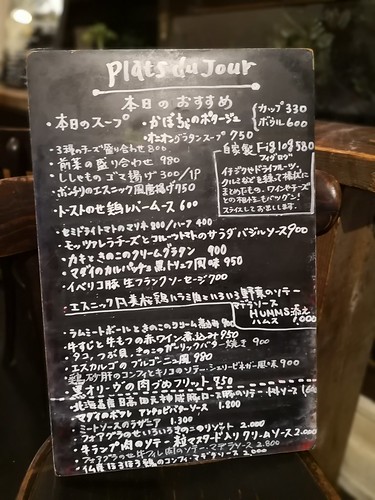 Plats du Jour
本日のおすすめ
・本日のスープ ・かぼちゃのポタージュ カップ 330
ボウル 600
・オニオングラタンスープ 750
・3種のチーズ盛り合わせ 800
・前菜の盛り合わせ 980
・ししゃものゴマ揚げ 300/1P
・ポンチリのエスニック風唐揚げ 750
・トーストのせ鶏レバームース 600
自家製 Figlog 580
フィグログ
イチジクやドライフルーツ、
クルミなどを練って棒状に
まとめたもの。ワインやチーズ
との相性もバッグン!
スライスしてお出しします。
・セミドライトマトのマリネ 800/ハーフ 400
・モッツァレラチーズとフルーツトマトのサラダ バジルソース 900
・カキときのこのクリームグラタン 900
・マダイのカルパッチョ 黒トリュフ風味 950
・イベリコ豚 生フランクソーセージ 700
・エスニック
野菜のソテー
HUMMS添え
ハムス 1,000
・ラムミートボールときのこのクリーム煮
・牛すじと牛もつの赤ワイン煮込み 950
・タコ、つぶ貝、きのこのガーリックバター焼き 900
・エスカルゴのブルゴーニュ風 980
・鶏砂肝のコンフィとキノコのソテー シェリービネガー風味 900
・黒オリーヴの肉づめフリット 750
・北海道産
・マダイのポワレ アンチョビバターソース 1.800
・ミートソースのラザニア 1.300
・フォアグラのせいろいろきのこのリゾット 2.000
・牛ランプ肉のソテー 粒マスタード入りクリームソース 2.000
・フォアグラのせ牛フィレ肉のソテー マデラソース 2.800
ほろほろ鶏のコンフィ マデラソース 2.000